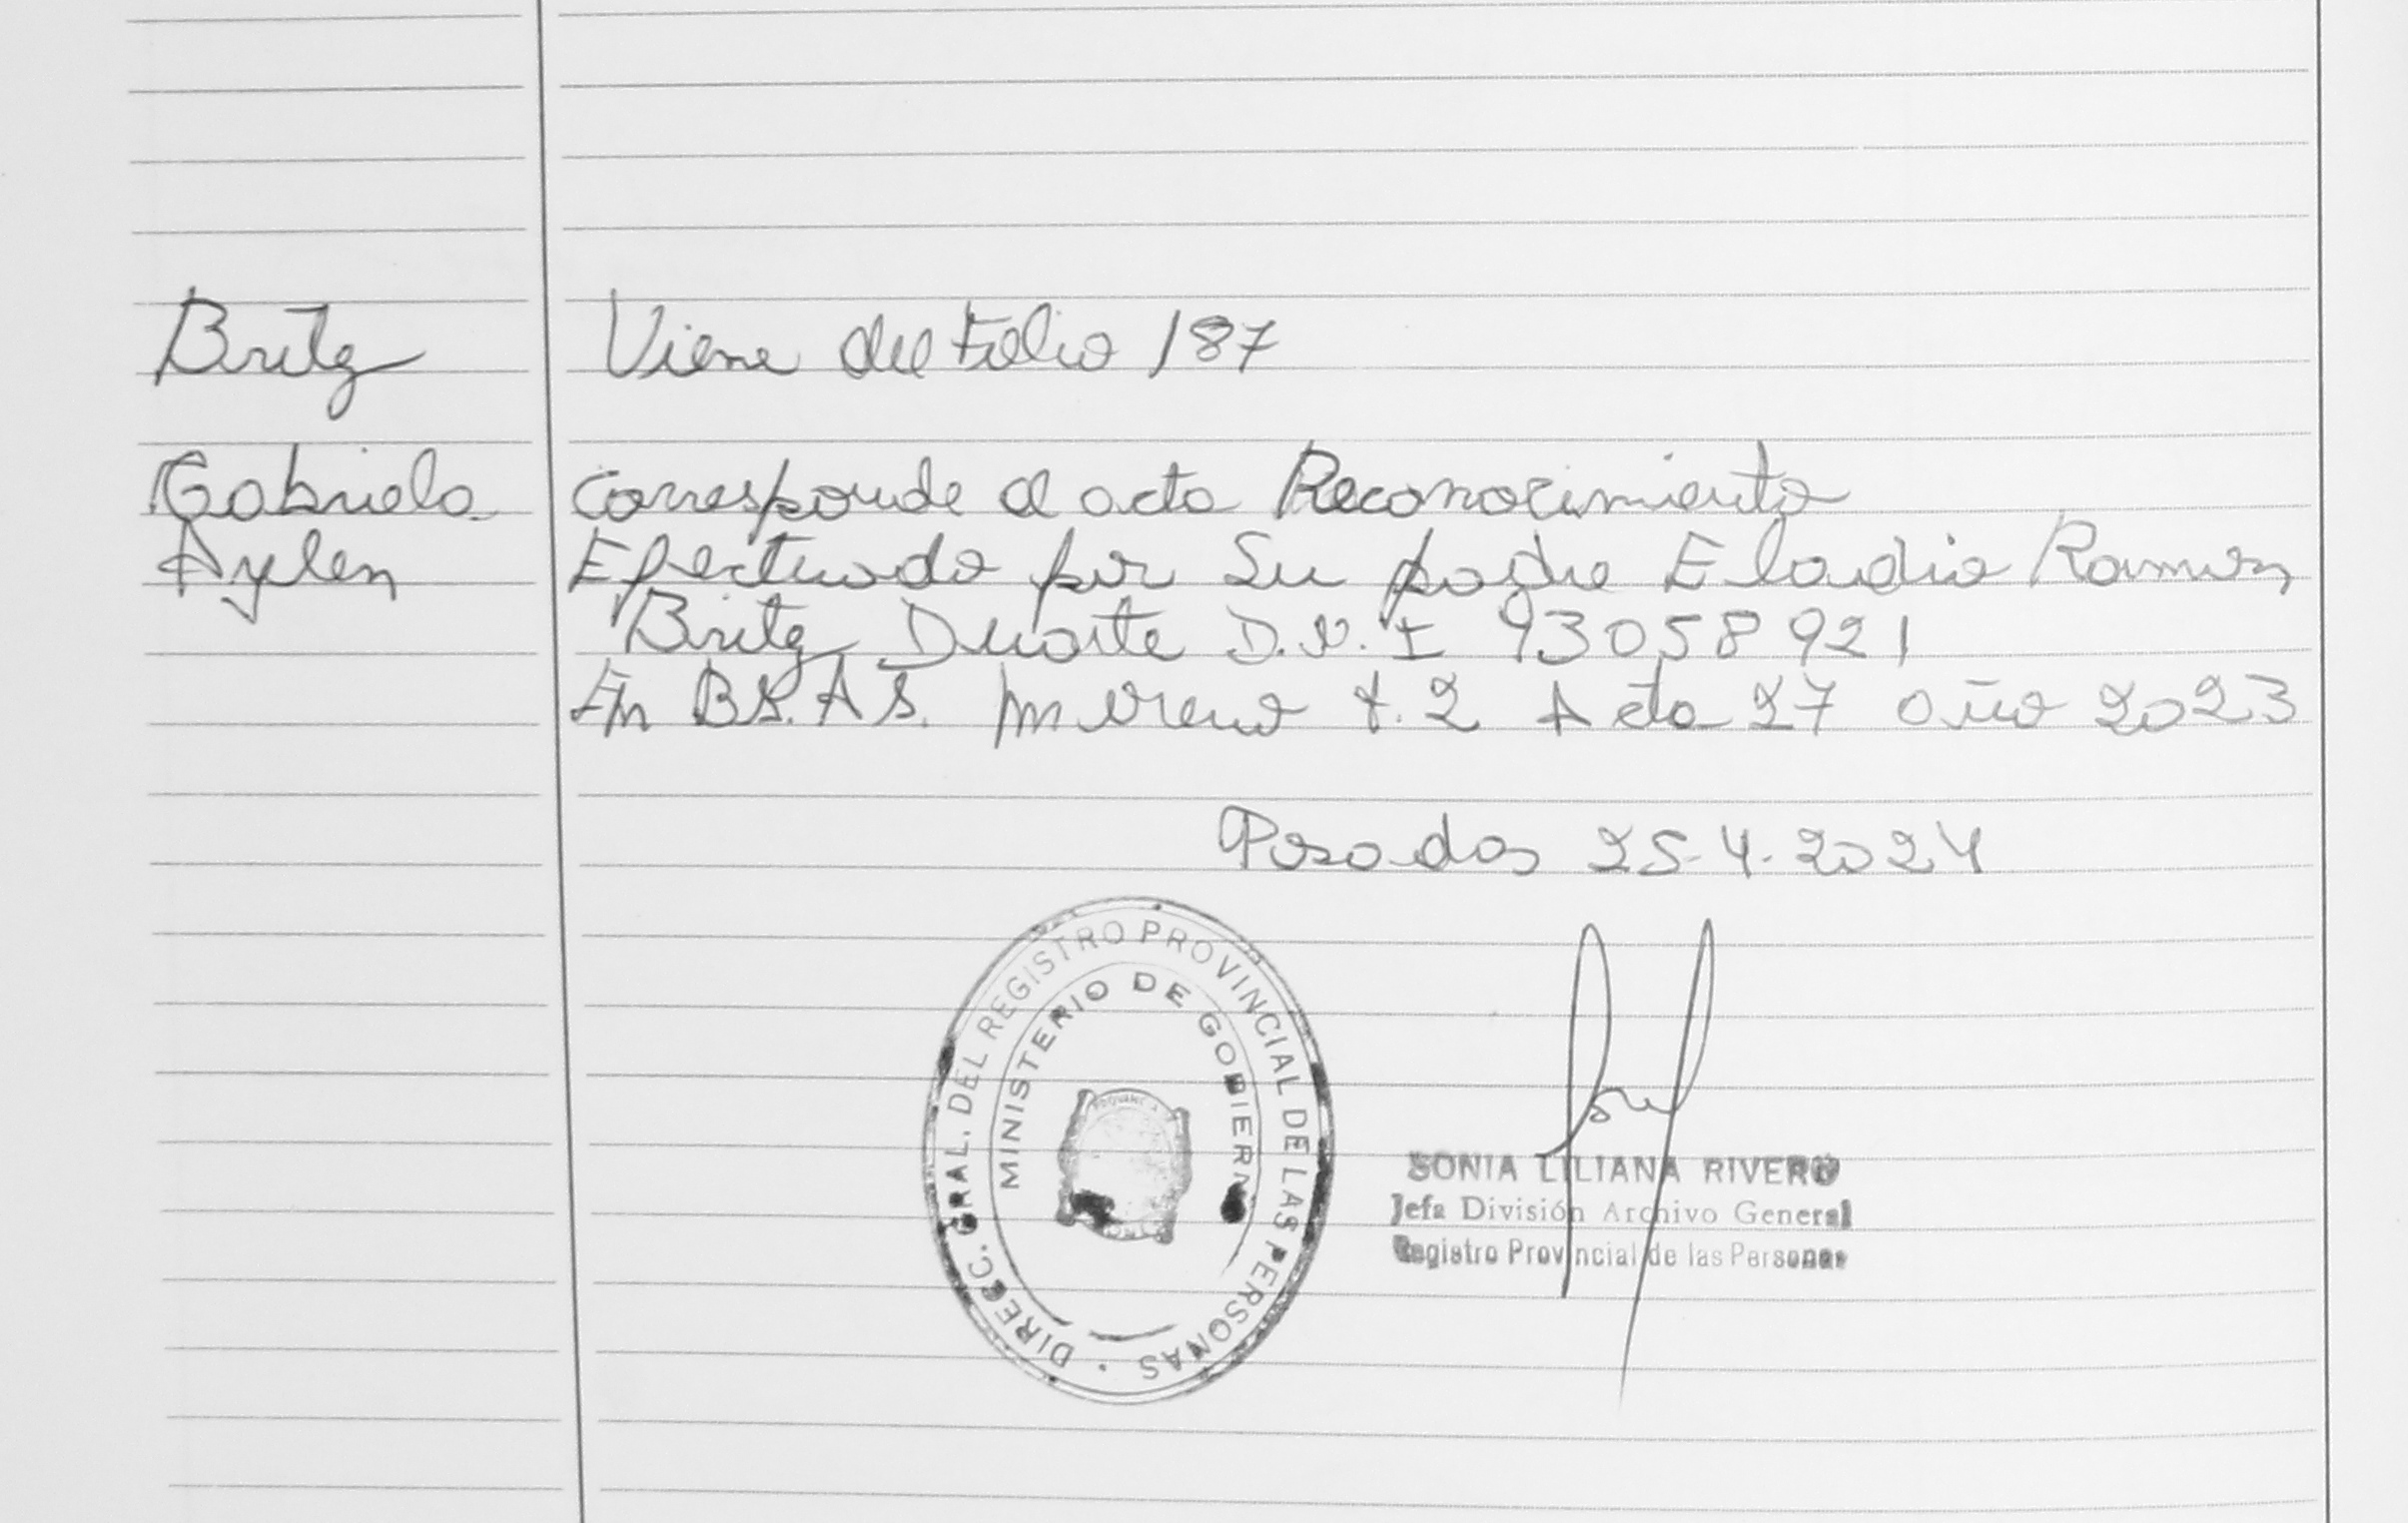 Britez
Viene del Folio 187
Gabriela
Aylen
Corresponde al acta Reconocimiento
Efectuado por Su padre Eladio Ramon
Britez Duarte D.N.I 93058921
En BS.AS. Moreno t.2 Acta 27 año 2023
Posadas 25-4-2024
DIRECC. GRAL. DEL REGISTRO PROVINCIAL DE LAS PERSONAS
MINISTERIO DE GOBIERNO
SONIA LILIANA RIVERO
Jefa División Archivo General
Registro Provincial de las Personas